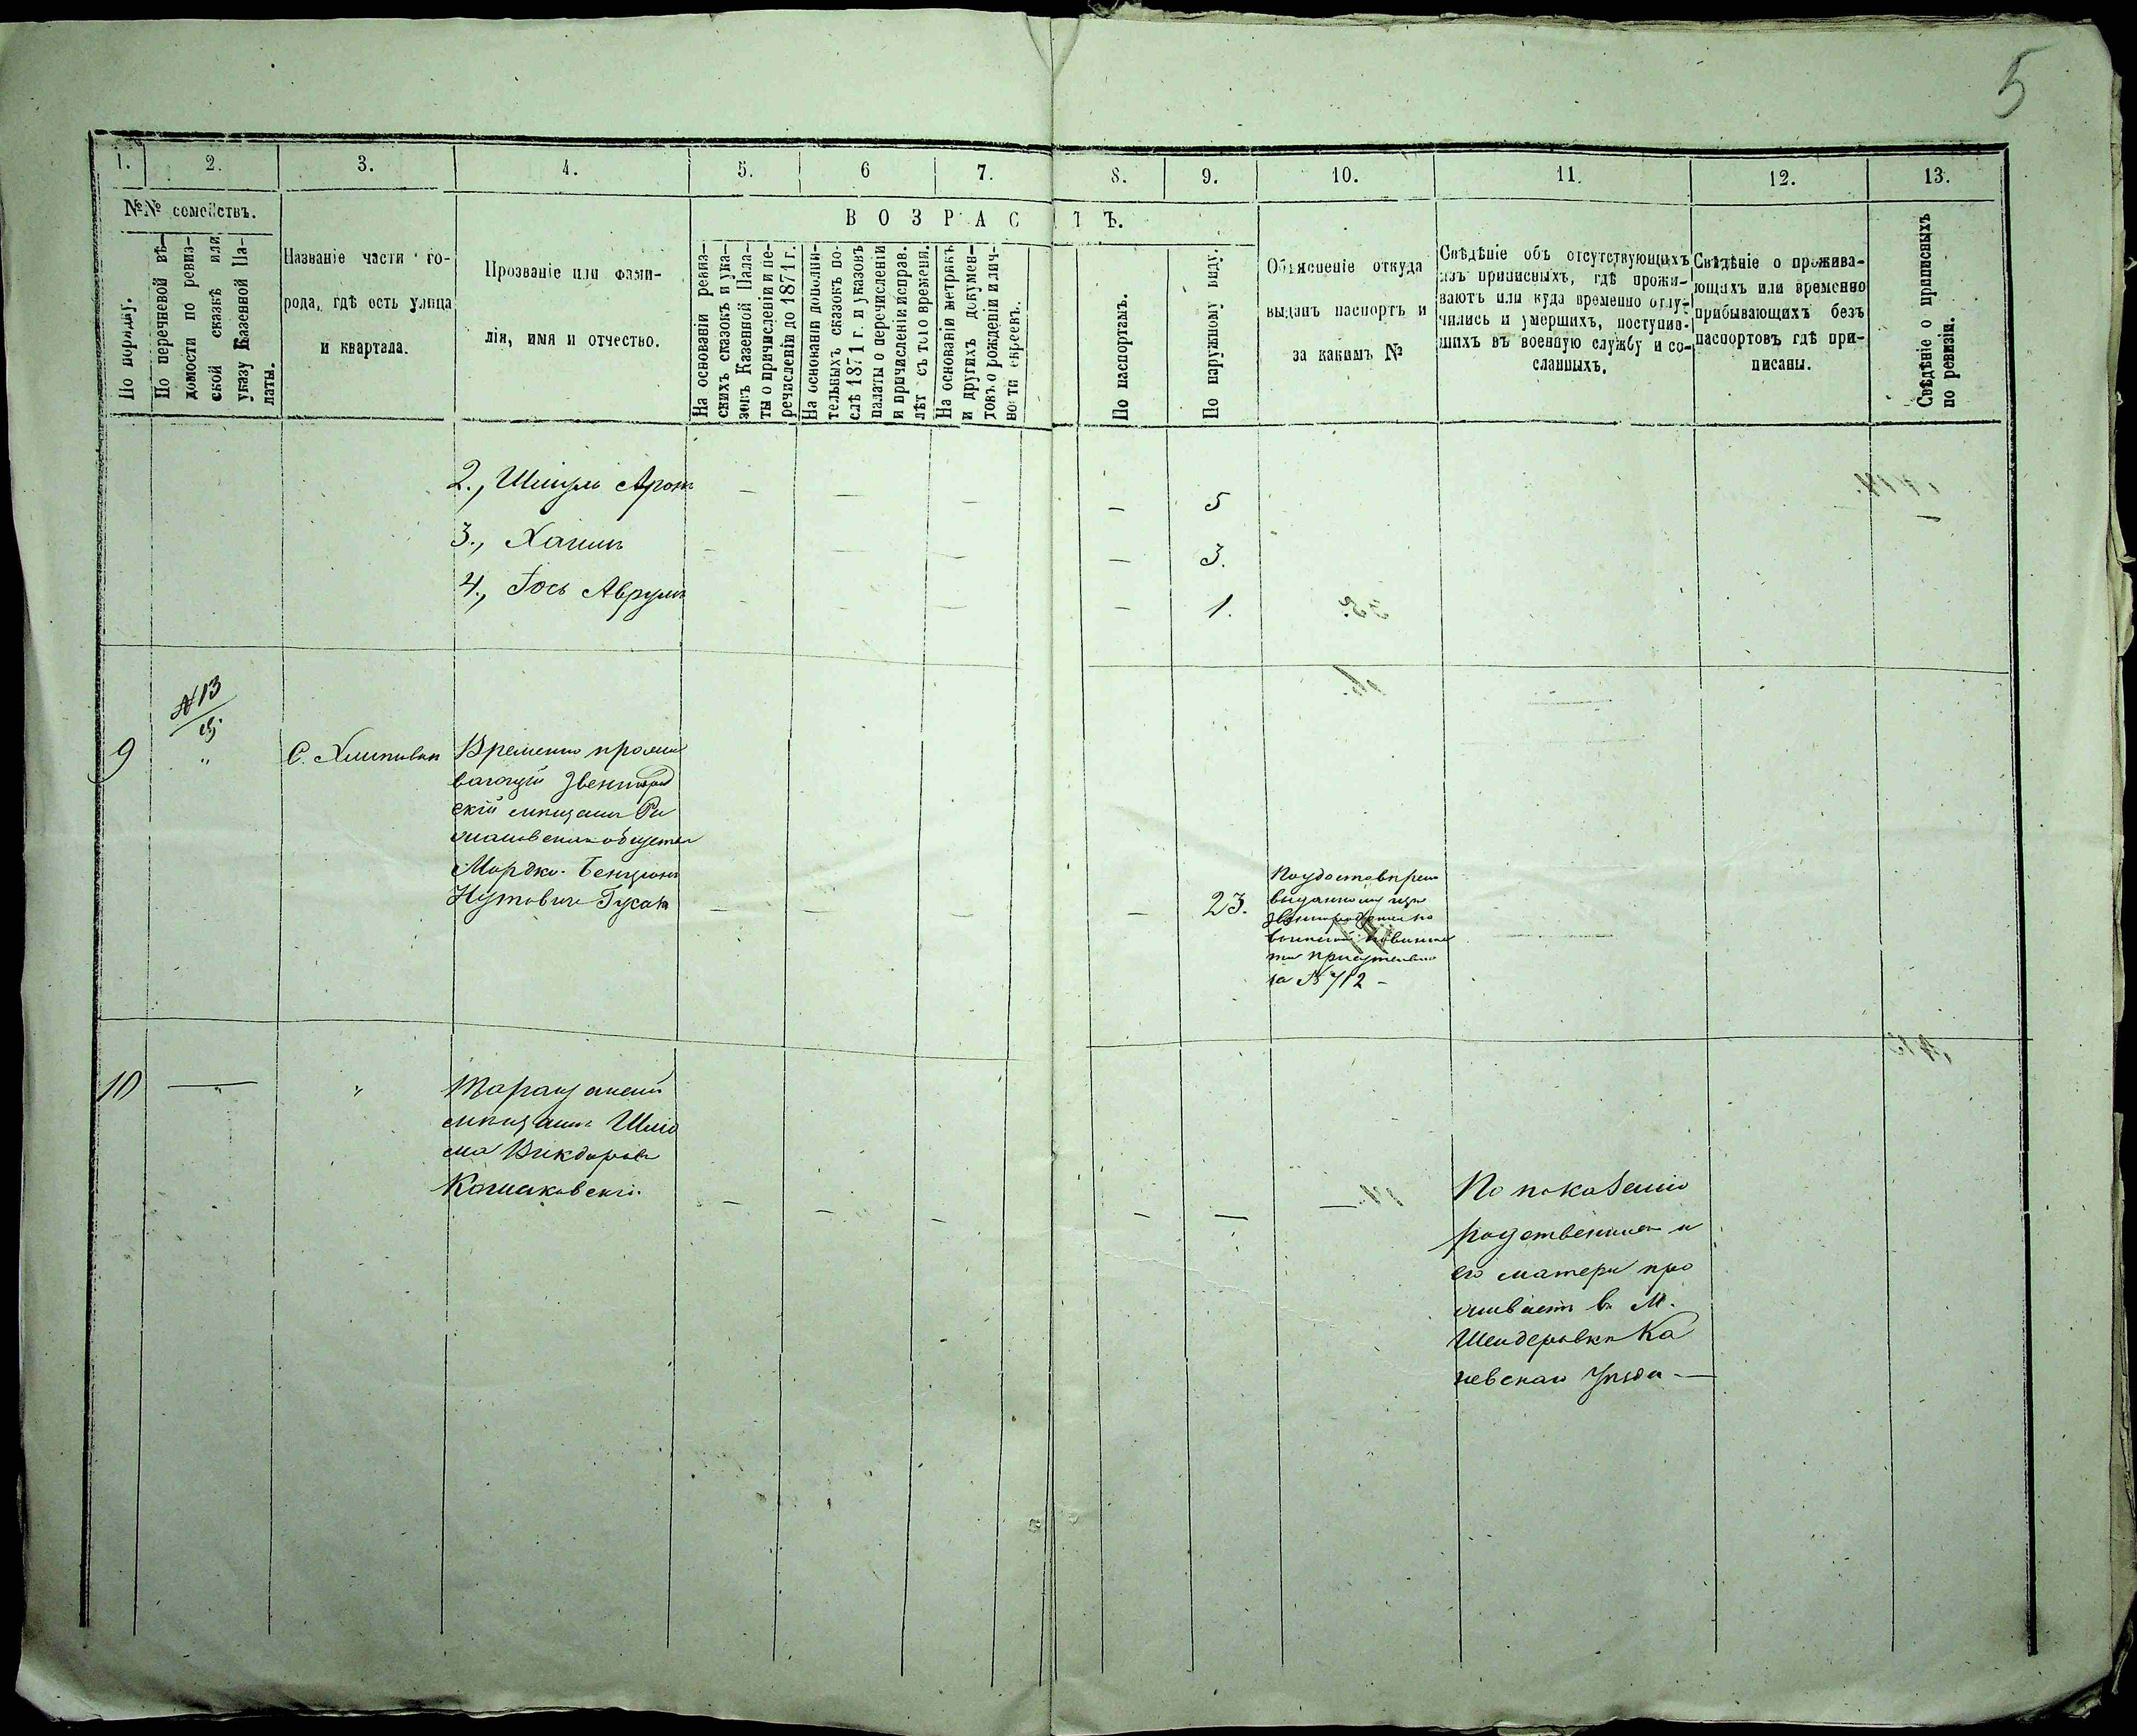 5
1. 2. 3. 4. 5. 6 7. 8. 9. 10. 11. 12. 13.
№№ семействъ.
По порядку.
По перечневой вѣ-
домости по ревиз-
ской сказкѣ или
указу Казенной Па-
латы.
Названіе части го-
рода, гдѣ есть улица
и квартала.
Прозваніе или фами-
лія, имя и отчество.
ВОЗРАСТЪ.
На основаніи ревиз-
скихъ сказокъ и ука-
зовъ Казенной Пала-
ты о причисленіи и пе-
речисленіи до 1871 г.
На основаніи дополни-
тельныхъ сказокъ по-
слѣ 1871 г. и указовъ
палаты о перечисленіи
и причисленіи исправ.
лѣт съ того времени.
На основаніи метрикъ
и другихъ докумен-
товъ о рожденіи и лич-
ности евреевъ.
По паспортамъ.
По наружному виду.
Объясненіе откуда
выданъ паспортъ и
за какимъ №
Свѣдѣніе объ отсутствующихъ
изъ приписныхъ, гдѣ прожи-
ваютъ или куда временно отлу-
чились и умершихъ, поступив-
шихъ въ военную службу и со-
сланныхъ.
Свѣдѣніе о прожива-
ющихъ или временно
прибывающихъ безъ
паспортовъ гдѣ при-
писаны.
Свѣдѣніе о приписныхъ
по ревизіи.
2., Шмуль Арон — — — — 5
3., Хаимъ — — — — 3.
4., Іось Аврумъ — — — — 1.
№ 13
9 " С. Хлиповка Временно прожи
вающій Звенигород
скій мѣщанинъ
общества
Мордко-Бенціонъ
Нутовичъ Гусакъ — — — — 23.
выданному изъ
Звенигородскаго по
воинской повинно
сти присутствія
за № 712 -
10 — " " Таращанскій
мѣщанинъ Шлио
ма
— — — — — —
По показанію
родственниковъ и
его матери про
живаетъ въ М.
Шендеровкѣ Ка
невскаго Уѣзда —